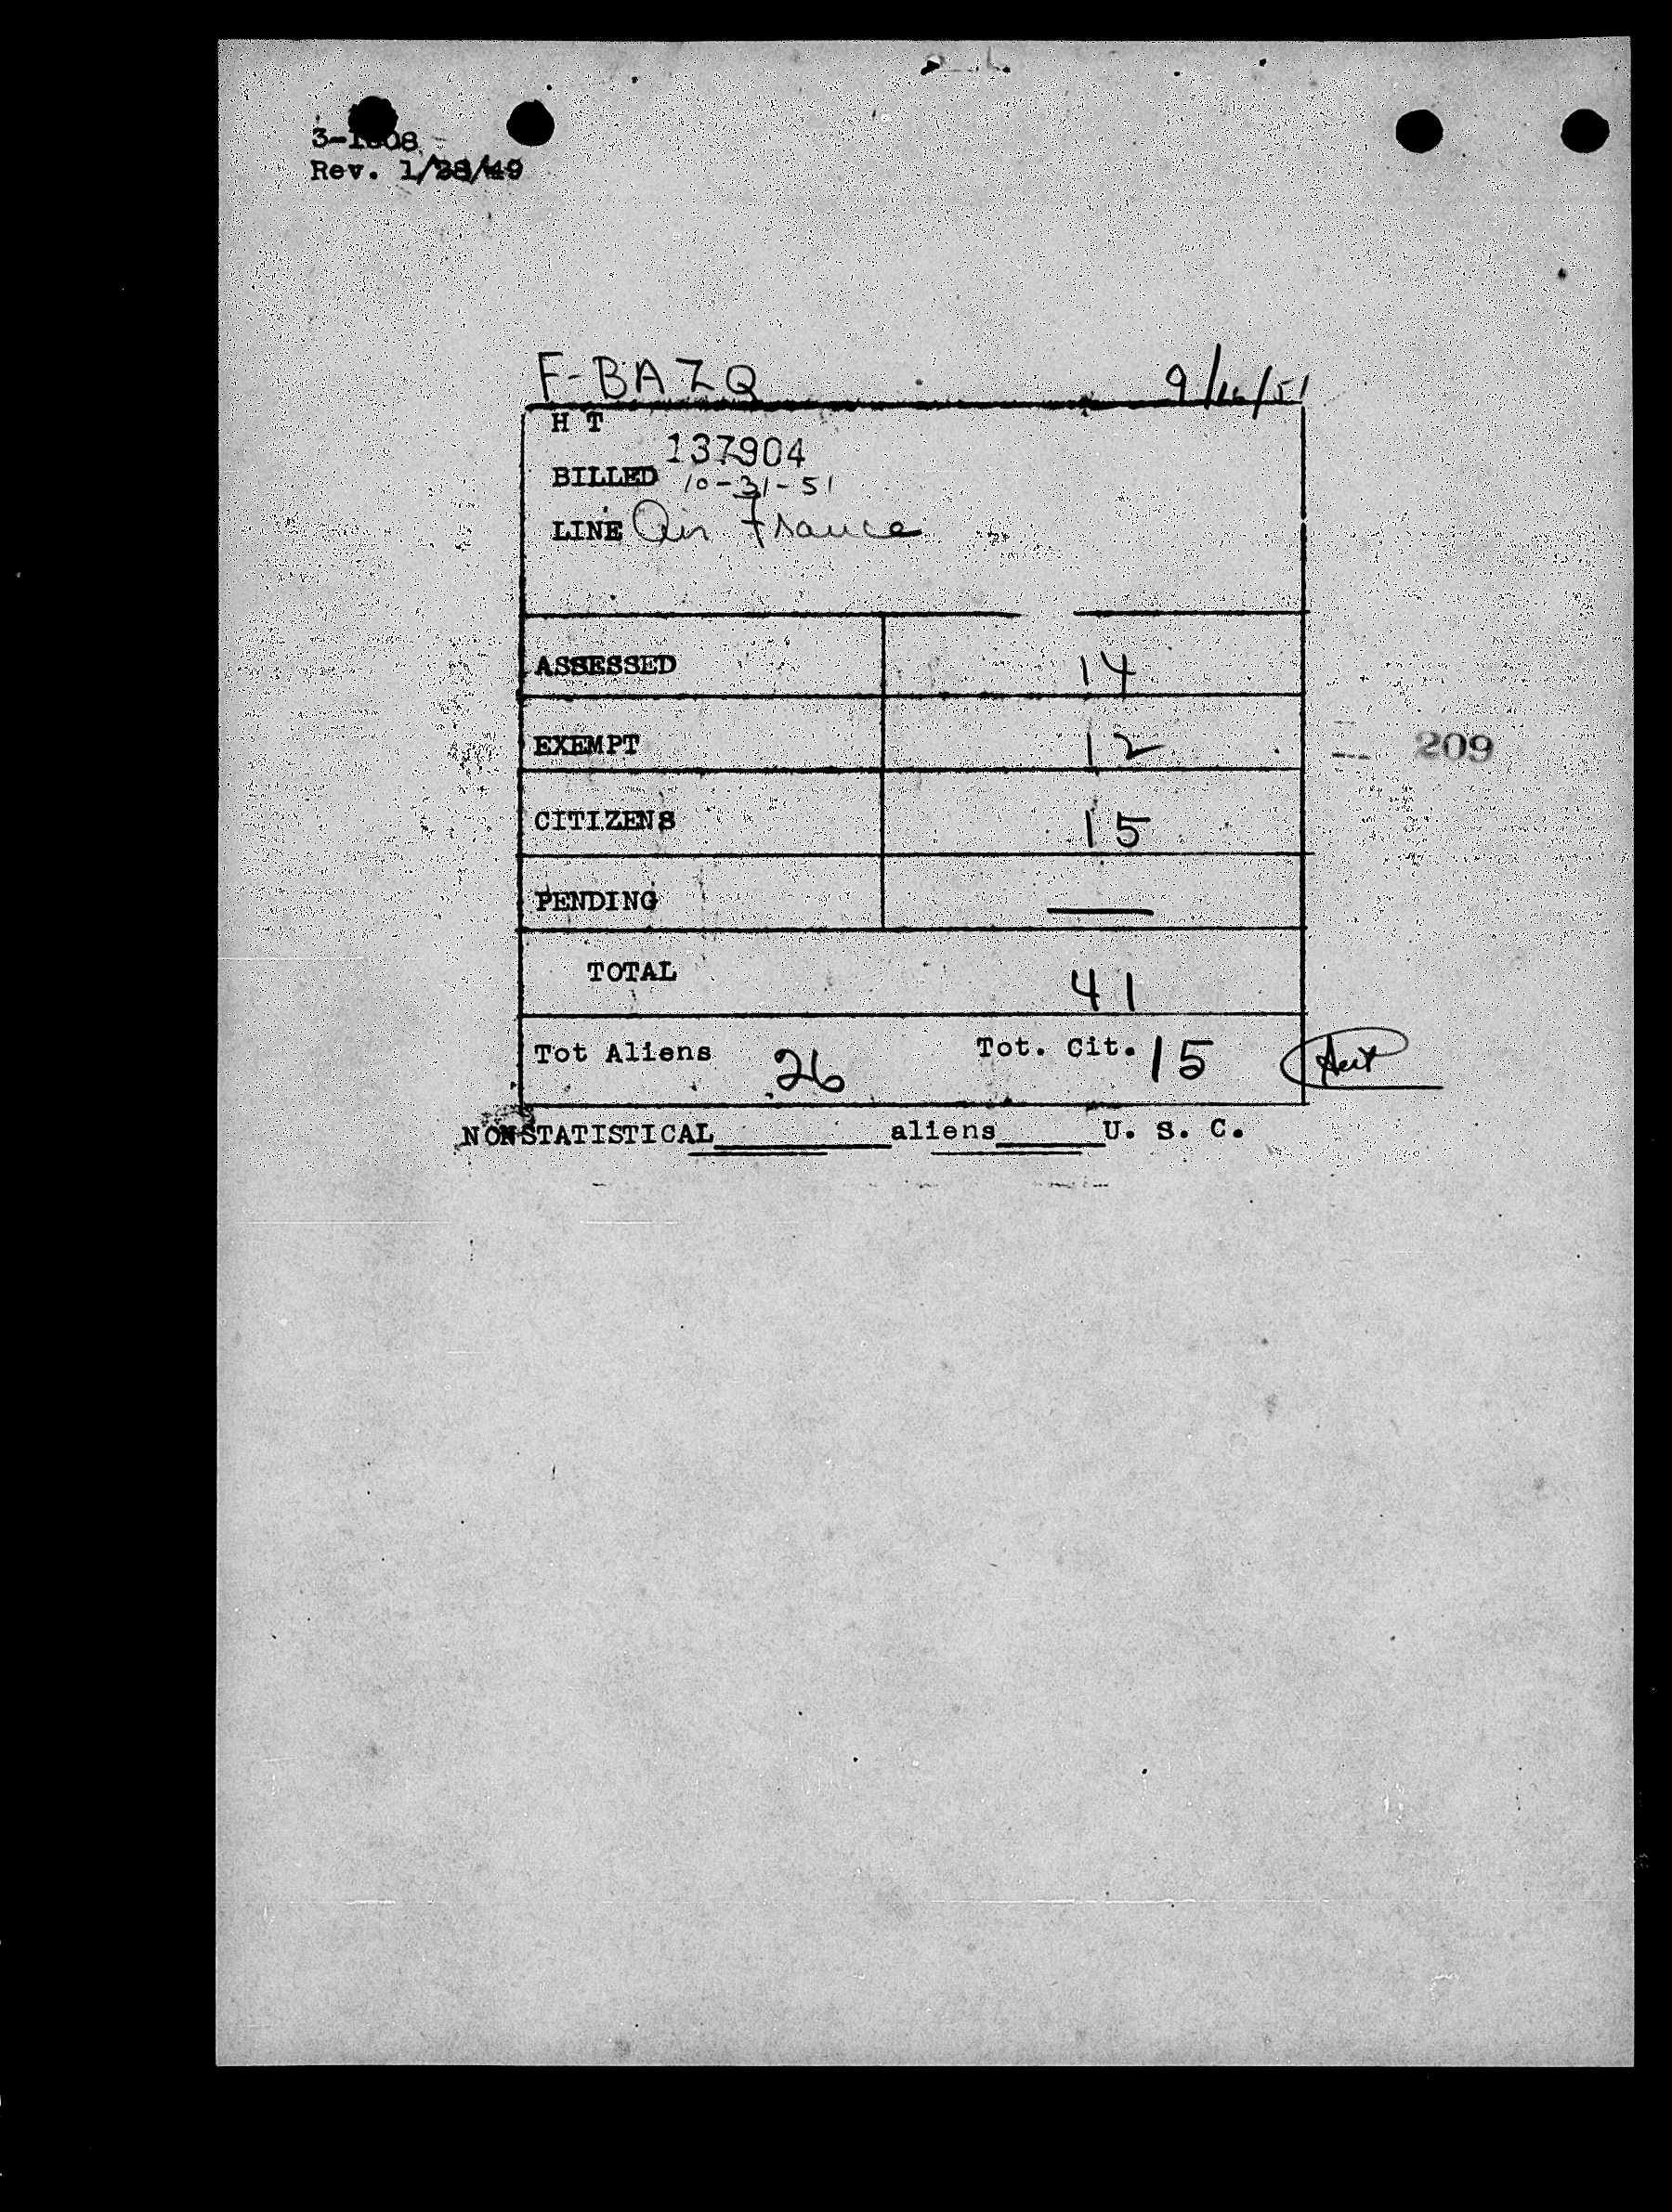 Rev. 1/28/49
F-BAZQ 9/16/51
H T
137904
BILLED 10-31-51
LINE Air France
ASSESSED 14
EXEMPT 12
209
CITIZENS 15
PENDING —
TOTAL 41
Tot Aliens 26 Tot. Cit. 15
NONSTATISTICAL__________aliens______U. S. C.